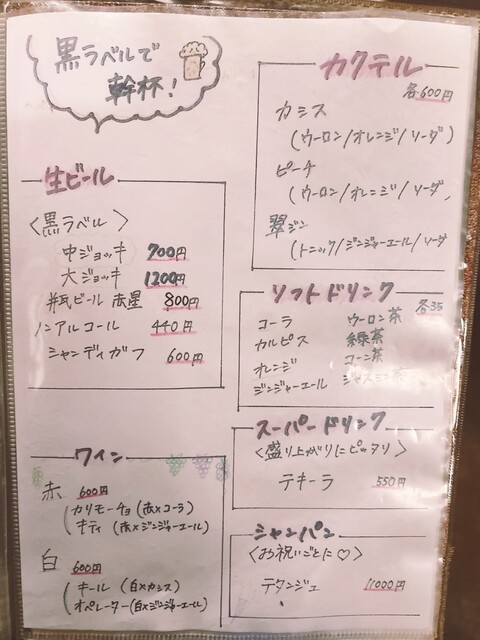 黒ラベルで
幹杯!
生ビール
<黒ラベル>
中ジョッキ 700円
大ジョッキ 1200円
瓶ビール 赤星 800円
ノンアルコール 440円
シャンディガフ 600円
ワイン
赤 600円
カリモーチョ(赤×コーラ)
キティ (赤×ジンジャーエール)
白 600円
キール (白×カシス)
オペレーター(白×ジンジャーエール)
カクテル
各600円
カシス
(ウーロン/オレンジ/ソーダ)
ピーチ
(ウーロン/オレンジ/ソーダ
翠ジン
(トニック/ジンジャーエール/ソーダ
ソフトドリンク
各35
コーラ ウーロン茶
カルピス 緑茶
オレンジ コーン茶
ジンジャーエール ジャスミン茶
スーパードリンク
<盛り上がりにピッタリ>
テキーラ 550円
シャンパン
<お祝いごとに♡>
テタンジェ 11000円